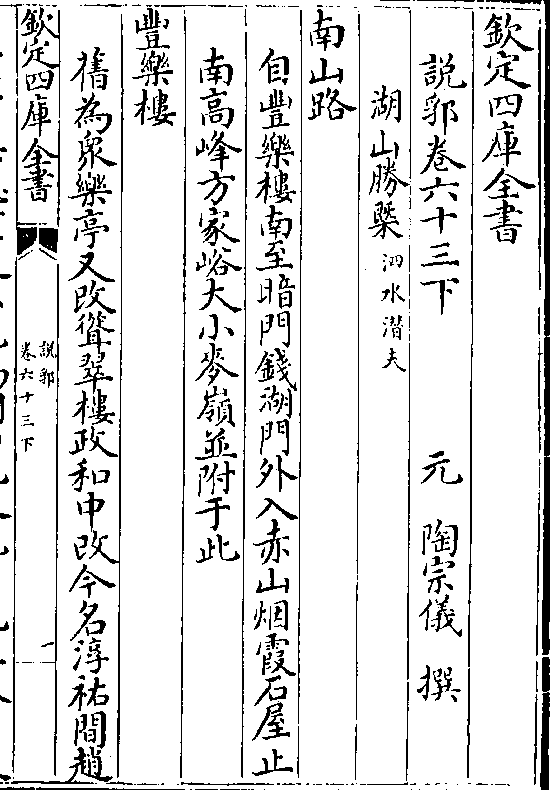 欽定四庫全書
説郛卷六十三下
元 陶宗儀 撰
湖山勝槩 泗水潛夫
南山路
自豐樂樓南至暗門錢湖門外入赤山烟霞石屋止
南高峰方家峪大小麥嶺並附于此
豐樂樓
舊為衆樂亭又改聳翠樓政和中改今名淳祐間趙
欽定四庫全書
説郛
卷六十三下
一